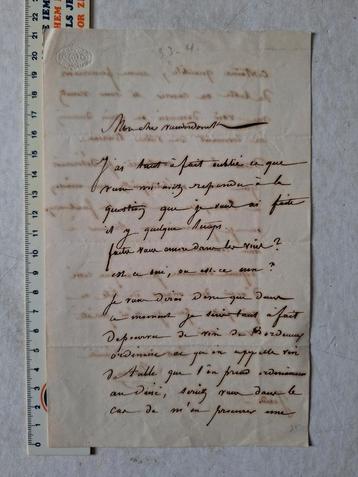 33-4.
Mon cher
J'ai tout à fait oublié ce que
vous m'avez répondu à la
question que je vous ai faite
il y quelque temps
faites vous encore dans les vins?
est ce oui, ou est-ce non?
Je vous dirai donc que dans
ce moment je suis tout à fait
dépourvu de vin de Bordeaux
ordinaire ce qu'on appelle vin
de table que l'on prend ordinairement
au diné, seriez vous dans le
cas de m'en procurer une